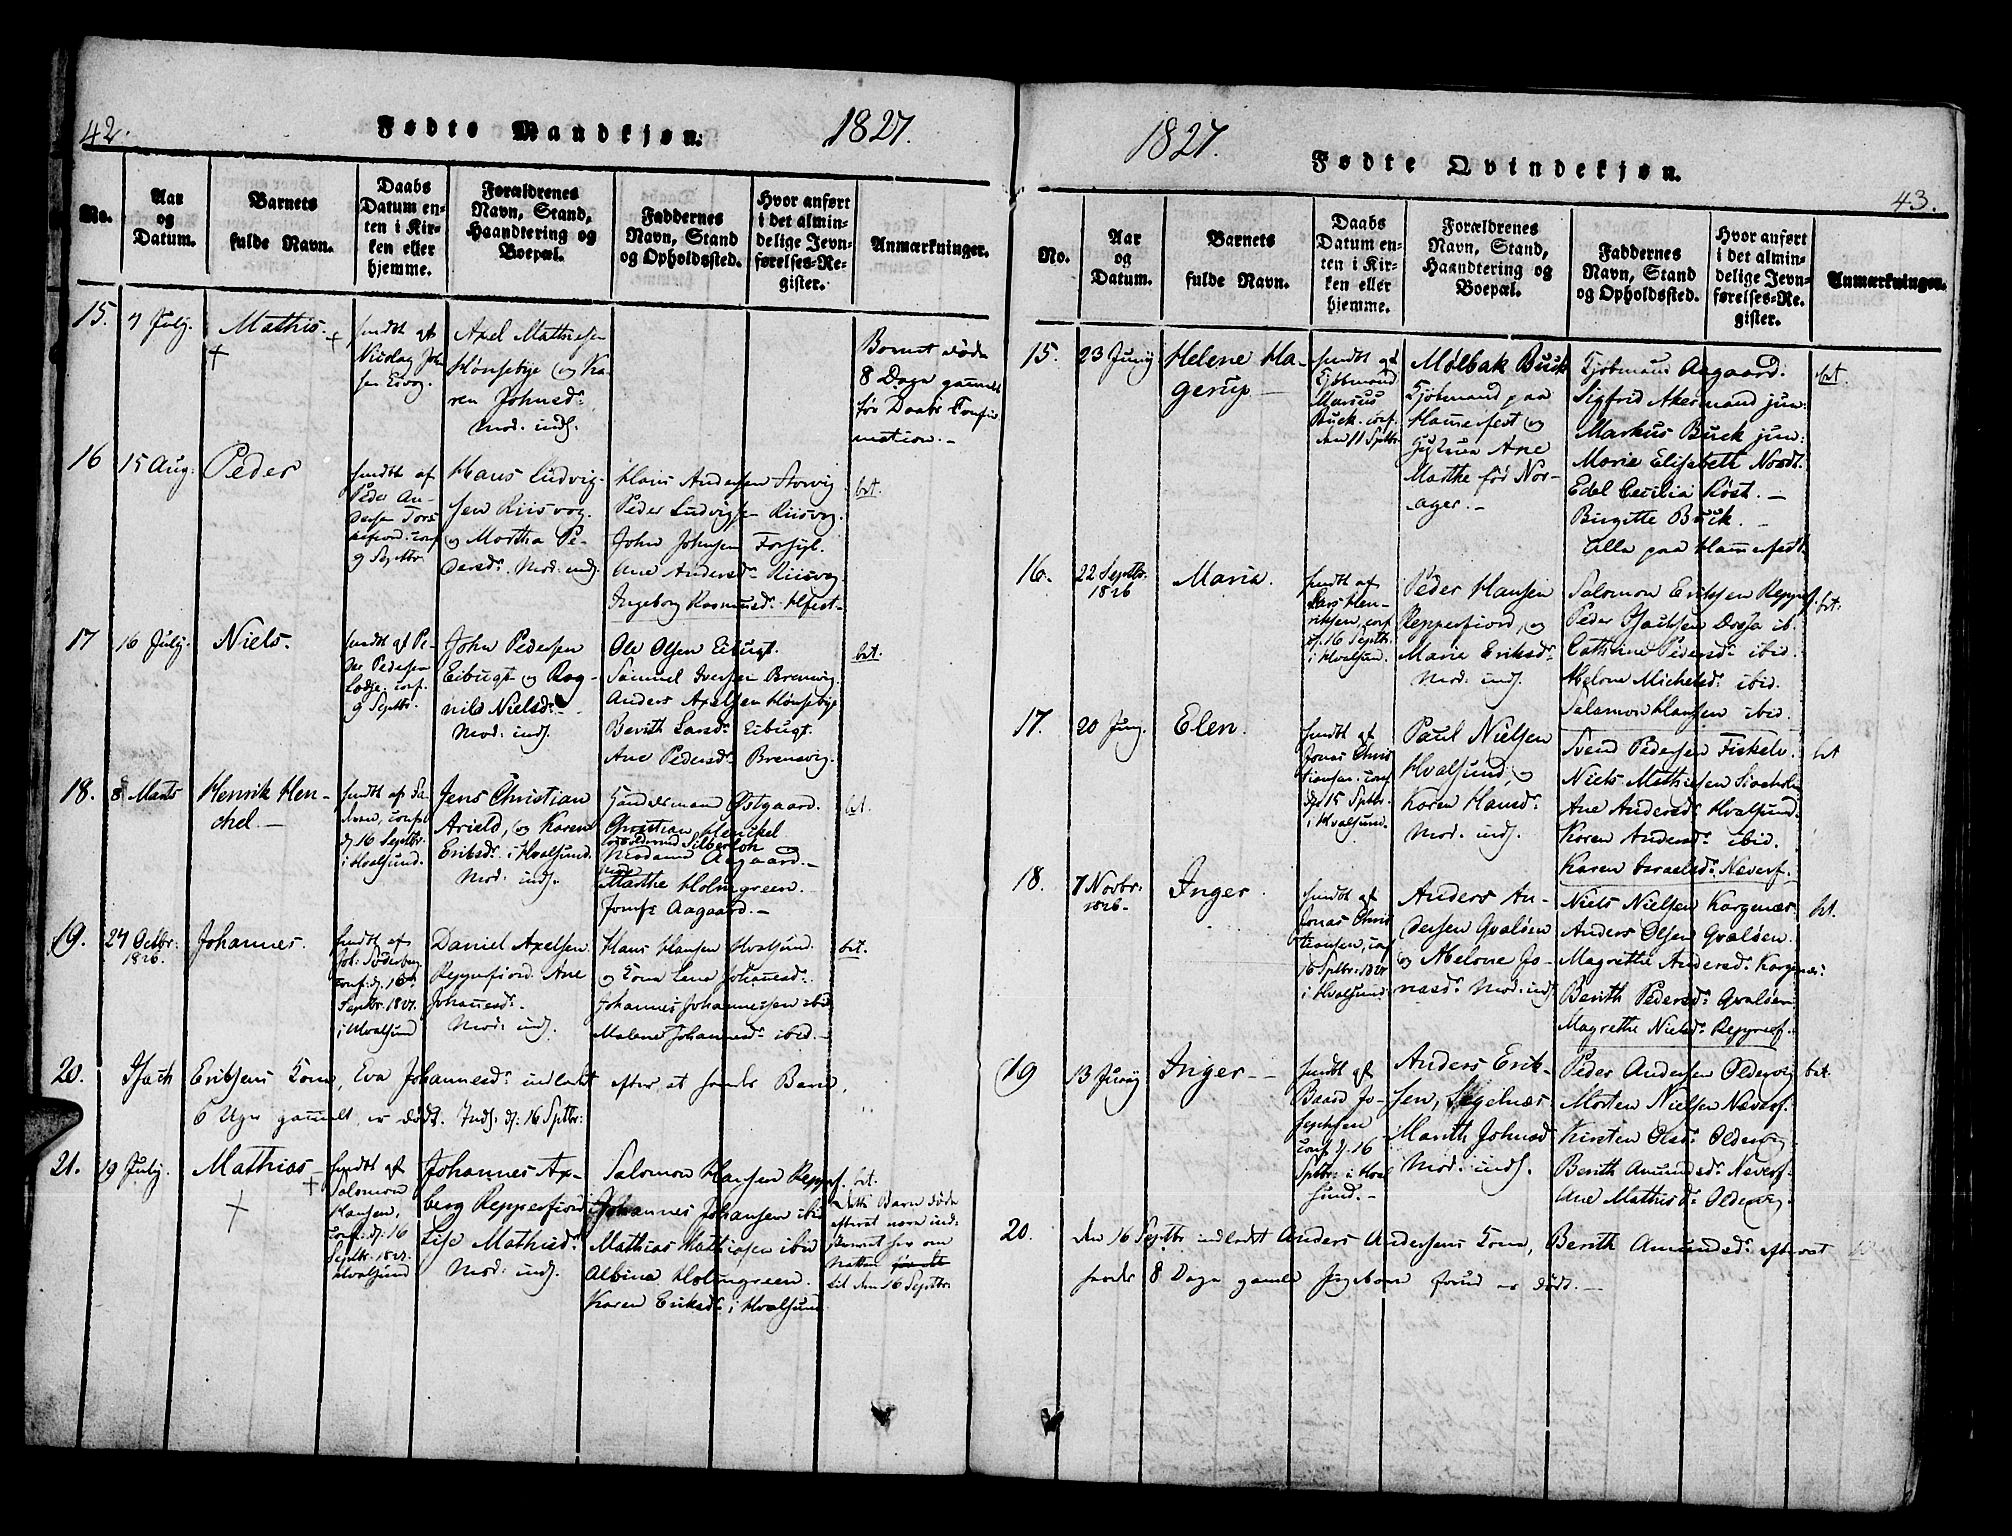 42.
Fødte Mandkjøn.
1827.
No.
Aar
og
Datum.
Barnets
fulde Navn.
Daabs
Datum en-
ten i Kir-
ken eller
hjemme.
Forældrenes
Navn, Stand,
Haandtering og
Boepæl.
Faddernes
Navn, Stand
og Opholdssted.
Hvor anført
i det almin-
delige Jevn-
førelses-Re-
gister.
Anmærkninger.
15.
7 July.
Mathis.
Axel Mathisen
Hønsebye og Ka-
ren Johnsdr.
Mod: inds.
Barnet døde
8 Dage gammel
før Daabs Confir
mation.-
16
15 Aug:
Peder
hiemdt af
Peder An-
dersen
conf
9 Septbr.
Hans Ludvig-
sen Riisvog.
og Martha Pe-
dersdr. Mod: inds.
Hans Andersen
Peder Ludvigsen Riisvog.
John Johnsen
Ane Andersdr. Riisvog.
Ingeborg Rasmusdr. Hfest-
bet.
17
16 July.
Niels.
hiemdt af Pe-
der Pedersen
conf.
9 Septbr.
John Pedersen
Eibugt og Rag-
nild Nielsdr.-
Mod: inds.
Ole Olsen Eibugt.
Samuel Iversen Brensvig.
Anders Axelsen Hønsebye
Berith Larsdr. Eibugt.
Ane Pedersdr. Brensvig.
bet.
18.
8 Marts
Henrik Hen-
chel.-
hiemdt af
conf.
d. 16 Septbr.
i Hvalsund.
Jens Christian
Arield, og Karen
Eriksdr. i Hvalsund.
Mod: inds.
Handelsmand Østgaard.
Christian Henckel
Madame Aagaard.-
Marthe Holmgreen.
Jomfr Aagaard.-
bet.
19.
24 Octbr:
1826.
Johannes.
hiemdt af
Joh: Søderberg
conf: d. 16
Septbr. 1827.
i Hvalsund
Daniel Axelsen
Repperfiord. Ane
Johannesdr.
Mod: inds.
Hans Hansen Hvalsund.
og Kona Lene Johannesdr.
Johannes Johannessen ibid
Malene Johannesdr. ibid.-
bet.
20.
Isach Eriksens Kona, Eva Johannesdr. indledt efter at hendes Barn,
6 Uger gammelt, er dødt. Inds. d: 16 Septbr:
21.
19 July.
Mathias
hiemdt af
Salomon
Hansen,
conf: d: 16
Septbr. 1827.
Hvalsund
Johannes Ax-
berg Repperfiord
Lise Mathisdr.
Mod: inds.
Salomon Hansen Repperf.
Johannes Johansen ibid
Mathias Mathiesen ibid
Albina Holmgreen.
Karen Eriksdr. i Hvalsund.
bet.
Dette Barn døde
efterat være ind:
om
Natten
til den 16 Septbr.
1827.
Fødte Qvindekjøn.
43.
No.
Aar
og
Datum.
Barnets
fulde Navn.
Daabs
Datum en-
ten i Kir-
ken eller
hjemme.
Forældrenes
Navn, Stand,
Haandtering og
Boepæl.
Faddernes
Navn, Stand
og Opholdssted.
Hvor anført
i det almin-
delige Jevn-
førelses-Re-
gister.
Anmærkninger.
15.
23 Juny
Helene Ha-
gerup-
hiemdt af
Kjøbmand
Marcus
Buck. conf.
den 11 Septbr
Mølbak Buck
Kjøbmand paa
Hammerfest og
Hustrue Ane
Marthe fød Nor-
ager.-
Kjøbmand Aagaard.
Sigfrid Akermand jun:
Markus Buck jun:
Marie Elisabeth Nordt.
Edel Cecilia Røst.-
Birgitte Buck.-
Alle paa Hammerfest.
bet.
16.
22 Septbr.
1826
Maria.
hiemdt af
Lars Hen-
riksen, conf
d. 16 Septbr.
i Hvalsund.
Peder Hansen
Repperfiord, og
Marie Eriksdr.
Mod: inds.
Salomon Eriksen Repperf.
Peder Isachsen ib.
Cathrine Pedersdr. ibid.
Abelone Michelsdr. ibid.
Salamon Hansen ibid.
bet.
17.
20 Juny.
Elen.
hiemdt af
Jonas Chris
tiansen. conf
d. 15 Septbr.
i Hvalsund.
Paul Nielsen
Hvalsund, og
Karen Hansdr.
Mod: inds.
Svend Pedersen Fiskelv.
Niels Mathiesen
Ane Andersdr. Hvalsund.
Karen Andersdr. ibid.
Karen Israelsdr. Neverf.
bet
18.
7 Novbr:
1826-
Inger.
hiemdt af
Jonas Chris
tiansen, conf
16 Septbr: 1827
i Hvalsund.
Anders An-
dersen Qvaløen
og Abelone Jo-
nasdr. Mod: inds
Niels Nielsen Kargenæs
Anders Olsen Qvaløen.
Magrethe Andersdr. Kargenæs:
Berith Pedersdr. Qvaløen
Magrethe Nielsdr. Repperf.
bet.
19
13 Juny
Inger-
hiemdt af
Baard Jo-
sephsen
conf. d. 16
Septbr. i Hval
sund.-
Anders Erik-
sen, Segelnæs
Marith Johnsd
Mod: inds.
Peder Andersen Oldervig
Morten Nielsen Næverf.
Kirsten Olsdr. Oldervig.
Berith Amundsdr. Neverf.
Ane Mathisdr. Oldervig.
bet.
20.
den 16 Septbr. indledt Anders Andersens Kona, Berith Amundsdr. efterat
hendes 8 Dage gamle Pigebarn forud er dødt.-